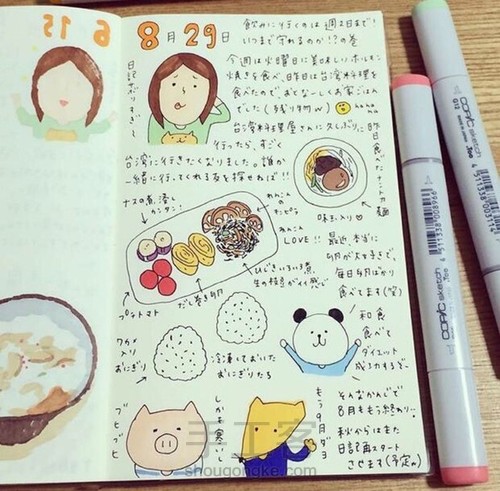 8月29日
飲みに行くのは週2日まで!
いつまで守れるのか!?の巻
今週は火曜日に美味しいホルモン
焼きを食べ、昨日は台湾料理を
食べたのでおとなしくお家ごはん
でした(残り物w) hahaha
台湾料理屋さんに久しぶりに
行ったら、すごく
台湾に行きたくなりました。誰か
一緒に行ってくれる友を探せねば!!
日記サボりすぎ〜
昨日食べた
麺
味玉入り♡
ナスの煮浸し
カンタン!
れんこんの
キンピラ
れんこん
LOVE!!
ひじきいろいろ煮
生の枝豆がイイ感じ
だし巻き卵
プチトマト
最近、本当に
卵が大好きで
毎日卵ばかり
食べてます(笑)
ワカメ
入り
おにぎり
冷凍しておいた
おにぎりたち
和食
食べて
ダイエット
成功するぞ〜
ブヒブヒ
しかも寒いし
もう9月ダヨ
そんなかんじで
8月ももう終わり。
秋からはまた
日記再スタート
させます(予定w)
COPIC sketch
Too
4 511338 008966
COPIC sketch
Too
4 511338
手工客
shougongke.com
6 15